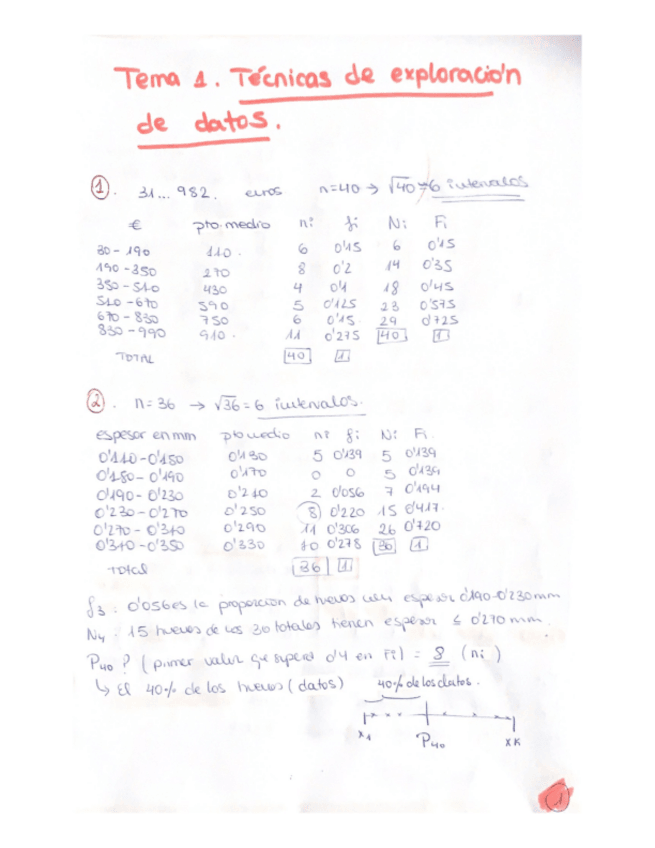 Tema 1. Técnicas de exploración
de datos.
1. 31... 982. euros n=40 → √40≈6 intervalos
€ pto. medio ni fi Ni Fi
30-190 110. 6 0'15 6 0'15
190-350 270 8 0'2 14 0'35
350-510 430 4 0'1 18 0'45
510-670 590 5 0'125 23 0'575
670-830 750 6 0'15. 29 0'725
830-990 910. 11 0'275 40 1
TOTAL 40 1
2. n=36 → √36=6 intervalos.
espesor en mm pto medio ni fi Ni Fi.
0'110-0'150 0'130 5 0'139 5 0'139
0'150-0'190 0'170 0 0 5 0'139
0'190-0'230 0'210 2 0'056 7 0'194
0'230-0'270 0'250 8 0'220 15 0'417.
0'270-0'310 0'290 11 0'306 26 0'720
0'310-0'350 0'330 10 0'278 36 1
Total 36 1
f3: 0'056 es la proporción de huevos con espesor 0'190-0'230mm
N4: 15 huevos de los 36 totales tienen espesor ≤ 0'270 mm.
P40? (primer valor que supera 0'4 en Fi) = 8 (ni)
↳ El 40% de los huevos (datos) 40% de los datos.
x1 P40 xK
1